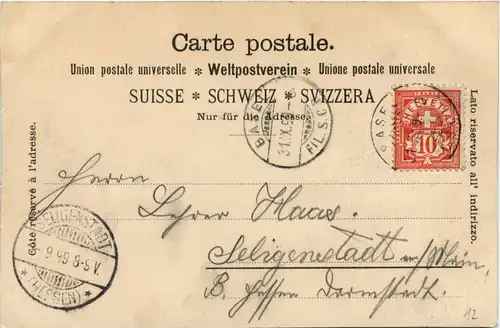 Carte postale.
Union postale universelle * Weltpostverein * Unione postale universale
SUISSE * SCHWEIZ * SVIZZERA
Nur für die Adresse.
Côté réservé à l'adresse.
Lato riservato all' indirizzo.
BASEL
31.X.9
FIL. S
HELVETIA
10
BASEL
SELIGENSTADT
9 99 8-9 V.
* (HESSEN) *
Herrn
Lehrer Haas.
Seligenstadt a/Main
B. Hessen Darmstadt
12